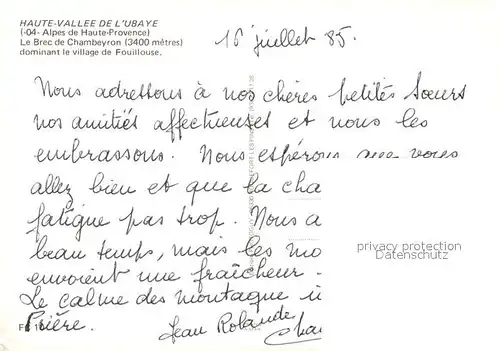 HAUTE-VALLEE DE L'UBAYE
(-04- Alpes de Haute-Provence)
Le Brec de Chambeyron (3400 mètres)
dominant le village de Fouillouse.
16 juillet 85.
Nous adressons à nos chères petites Sœurs
nos amitiés affectueuses et nous les
embrassons. Nous espérons que vous
allez bien et que la cha
fatigue pas trop. Nous a
beau temps, mais les mo
envoient une fraîcheur
Le calme des montagne i
Prière.
Jean Rolande
Cha
privacy protection
Datenschutz